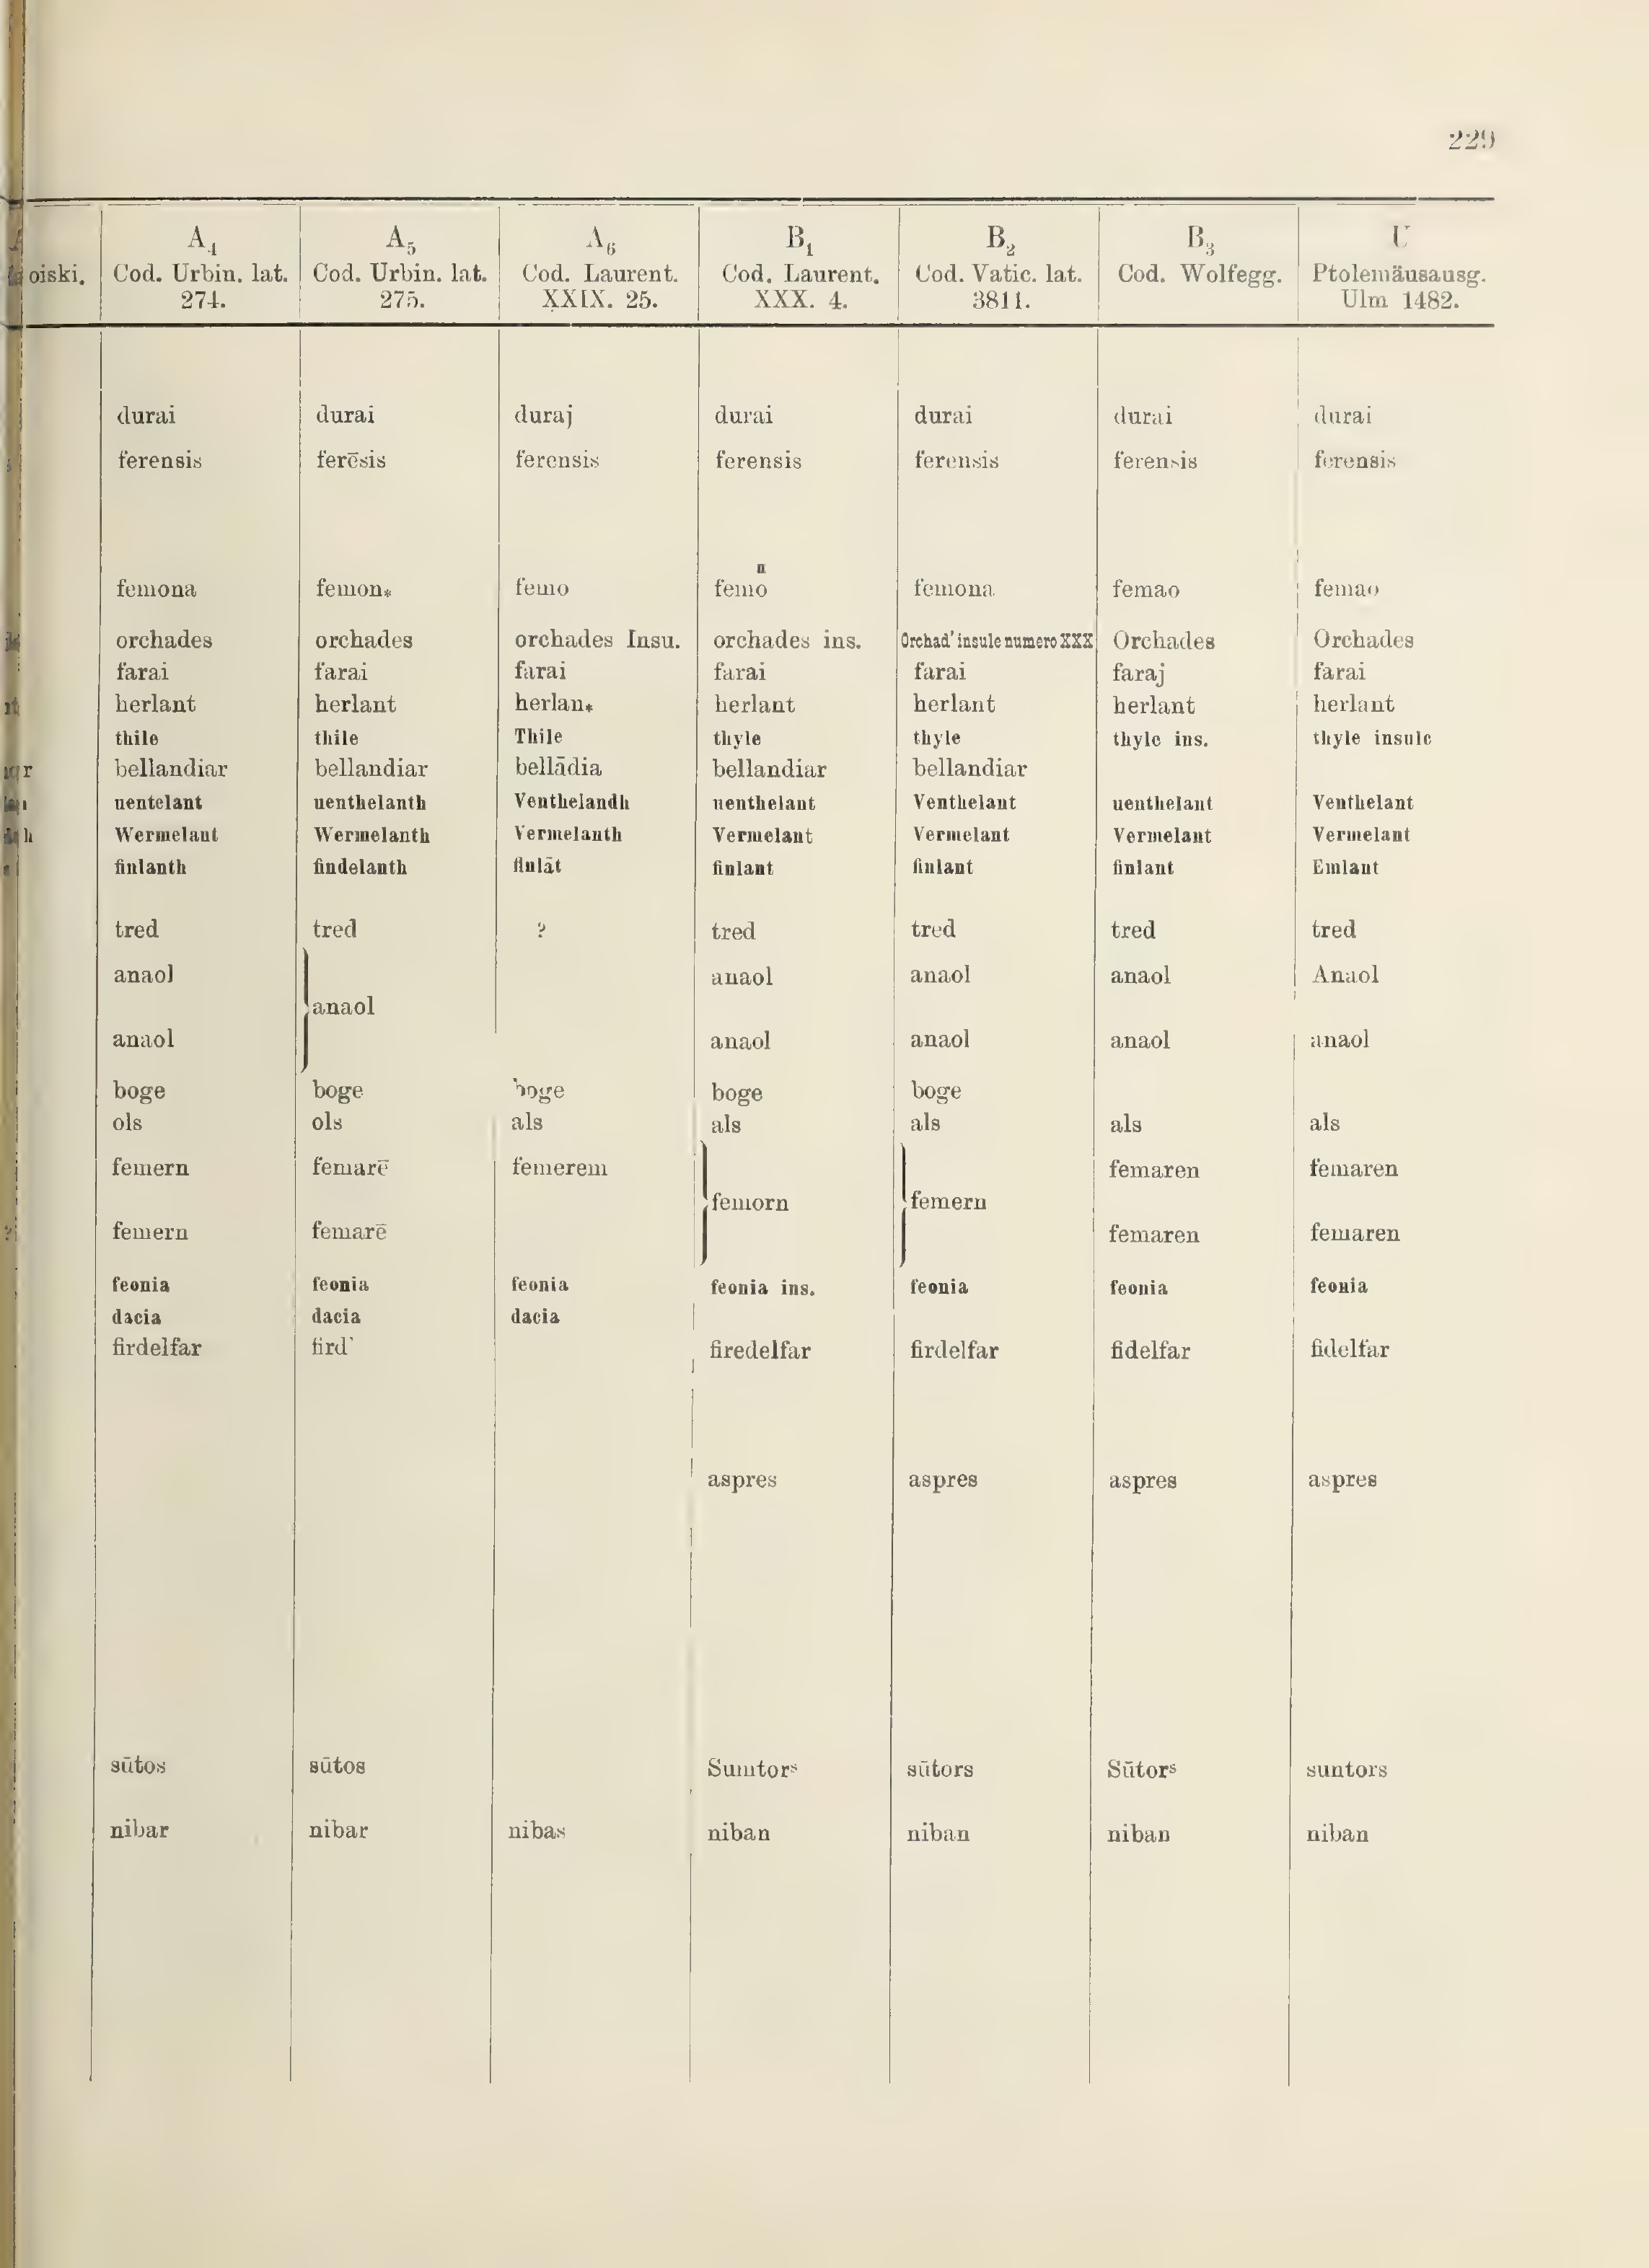 229
A₄ A₅ A₆ B₁ B₂ B₃ U
oiski. Cod. Urbin. lat. Cod. Urbin. lat. Cod. Laurent. Cod. Laurent. Cod. Vatic. lat. Cod. Wolfegg. Ptolemäusausg.
274. 275. XXIX. 25. XXX. 4. 3811. Ulm 1482.
durai durai duraj durai durai durai durai
ferensis ferēsis ferensis ferensis ferensis ferensis ferensis
n
femona femon* femo femo femona femao femao
orchades orchades orchades Insu. orchades ins. Orchad' insule numero XXX Orchades Orchades
farai farai farai farai farai faraj farai
herlant herlant herlan* herlant herlant herlant herlant
thile thile Thile thyle thyle thyle ins. thyle insule
r bellandiar bellandiar bellādia bellandiar bellandiar
uentelant uenthelanth Venthelandh uenthelant Venthelant uenthelant Venthelant
h Wermelant Wermelanth Vermelanth Vermelant Vermelant Vermelant Vermelant
finlanth findelanth finlāt finlant finlant finlant Emlant
tred tred ? tred tred tred tred
anaol anaol anaol anaol Anaol
anaol
anaol anaol anaol anaol anaol
boge boge boge boge boge
ols ols als als als als als
femern femarē femerem femaren femaren
femorn femern
femern femarē femaren femaren
feonia feonia feonia feonia ins. feonia feonia feonia
dacia dacia dacia
firdelfar fird' firedelfar firdelfar fidelfar fidelfar
aspres aspres aspres aspres
sūtos sūtos Sumtorˢ sūtors Sūtorˢ suntors
nibar nibar nibas niban niban niban niban